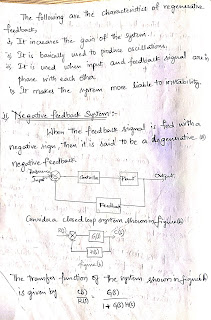 The following are the characteristics of regenerative
feedback,
It increases the gain of the system.
It is basically used to produce oscillations.
It is used when input and feedback signal are in
phase with each other
It makes the system more liable to instability.
Negative feedback System:-
When the feedback signal is fed with a
negative sign, then it is said to be a degenerative (or)
negative feedback
Reference
Input
Controller
Plant
Output
Feedback
Consider a closed loop system shown in figure
R(s)
G(s)
C(s)
H(s)
figure
The transfer function of the system shown in figure
is given by C(s) G(s)
R(s) 1 + G(s) H(s)